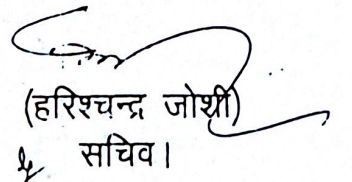 (हरिश्चन्द्र जोशी)
सचिव।